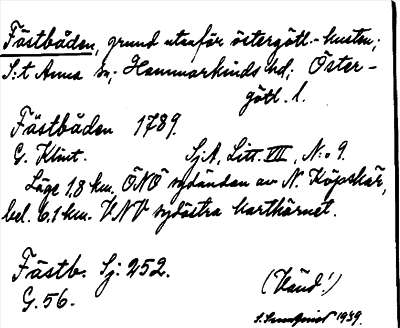 Fästbåden, grund utanför östergötl.-kusten;
S:t Anna sn; Hammarkinds hd; Öster-
götl. l.
Fästbåden 1789.
G. Klint. SjA, Litt. VII, N:o 9.
Läge 1,8 km. ÖNÖ sydändan av N. Köpskär,
bel. 6.1 km. VNV sydöstra karthörnet.
Fästb. Sj: 252.
G. 56. (Vänd!)
1939.